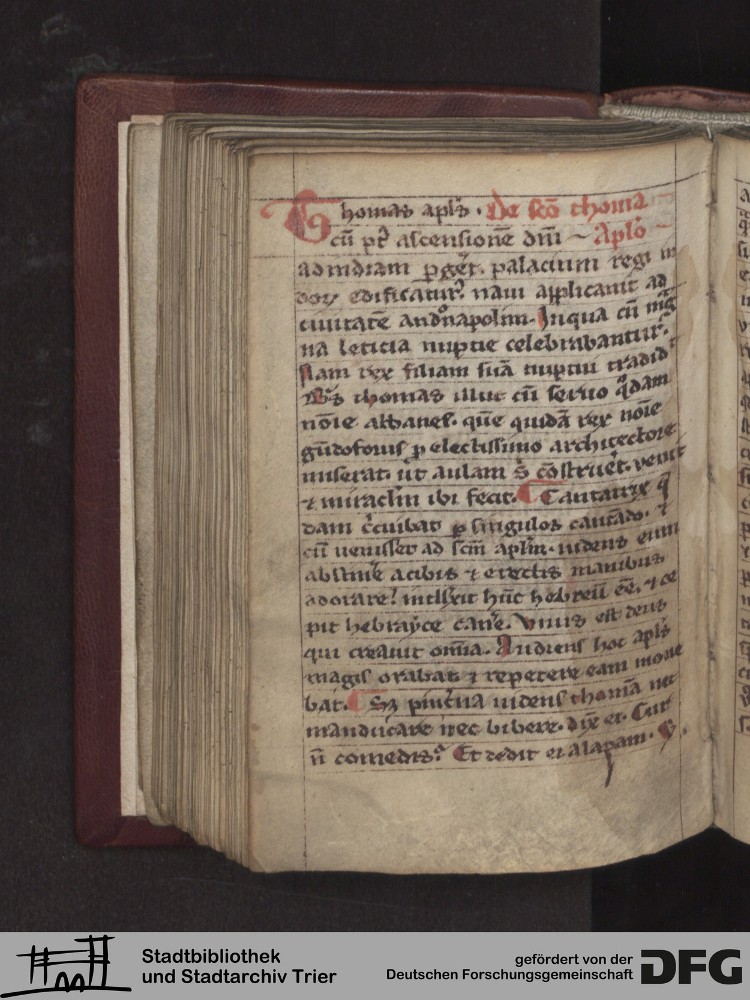 Thomas apl̅s. De sc̅o thoma
cū pꝰ ascensionē dn̅i ~ Aplo̅ ~
ad indiam ꝑgēt. palacium regi in
doꝝ edificaturꝰ. naui applicauit ad
ciuitatē Andͦnapolim. In qua cū mͣg
na leticia nuptie celebrabantur.
Nam rex filiam suā nuptui tradidͭ
thomas illuc cū seruo qͦdam
no̅ie abbanes. quē quidā rex no̅ie
gūdoforus ꝑ electissimo architectore
miserat. ut aulam sͥ cōstruēt. venit
⁊ miraclm̅ ibi fecit. ¶ Cantatrix qͥ
dam cͥcuibat ꝑ singulos cantādo. ⁊
cū uenisset ad sc̅m aplm̅. uidens eum
abstinē a cibis ⁊ erectis manibus
adorare. intllexit hūc hebreū eē. ⁊ ce
pit hebrayce canē. Vnus est deus
qui creauit om̅ia. Audiens hoc apl̅s
magis orabat ⁊ repetere eam mone
bat. ¶ Sꝫ pincͥna uidens thomā nec
manducare nec bibere. dix̅ ei. Cur
n̅ comedis. Et dedit ei alapam.
Stadtbibliothek
und Stadtarchiv Trier
gefördert von der
Deutschen Forschungsgemeinschaft
DFG